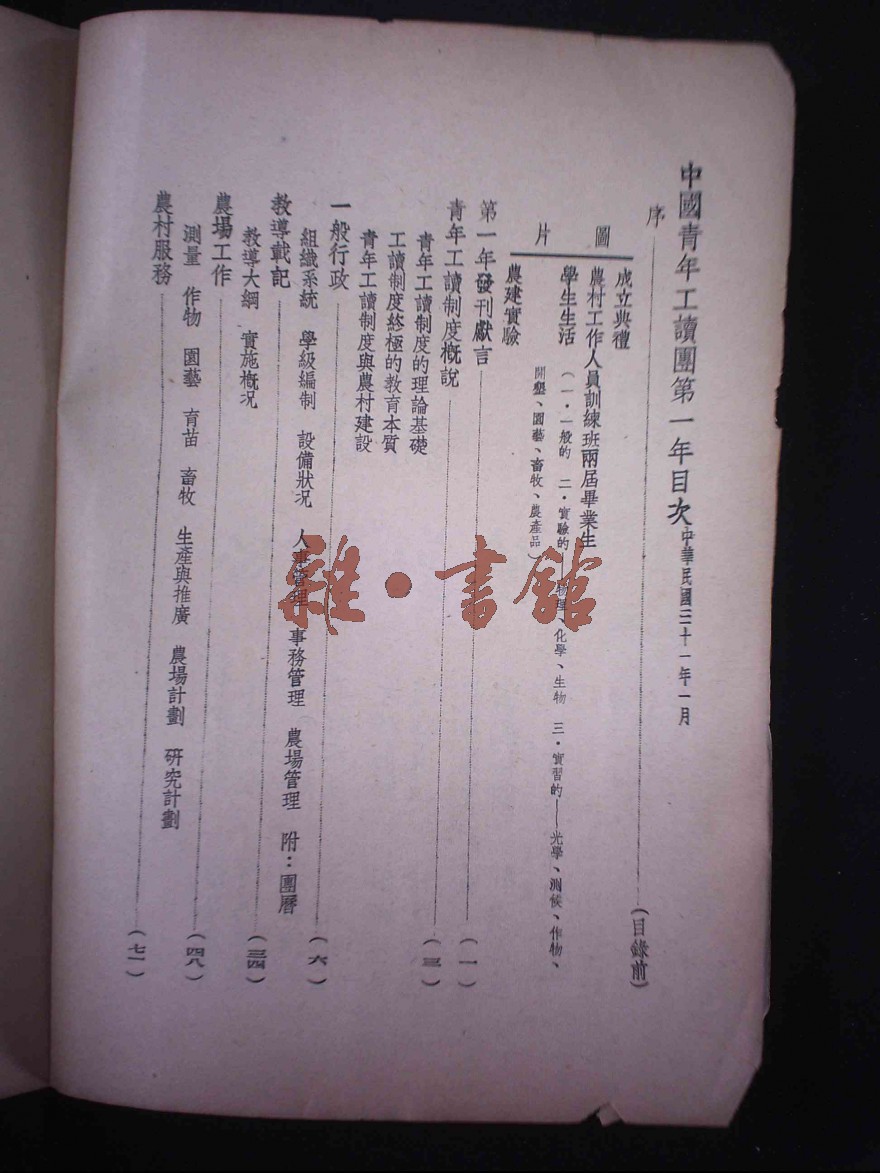 中國青年工讀團第一年目次 中華民國三十一年一月
序……(目錄前)
圖片
成立典禮
農村工作人員訓練班兩屆畢業生
學生生活(一・一般的 二・實驗的——物理、化學、生物 三・實習的——光學、測候、作物、
開墾、園藝、畜牧、農產品)
農建實驗
第一年發刊獻言……(一)
青年工讀制度概說……(三)
青年工讀制度的理論基礎
工讀制度終極的教育本質
青年工讀制度與農村建設
一般行政……(六)
組織系統 學級編制 設備狀况 人事管理 事務管理 農場管理 附：團曆
教導載記……(三四)
教導大綱 實施概况
農場工作……(四八)
測量 作物 園藝 育苗 畜牧 生產與推廣 農場計劃 研究計劃
農村服務……(七一)
雜・書館